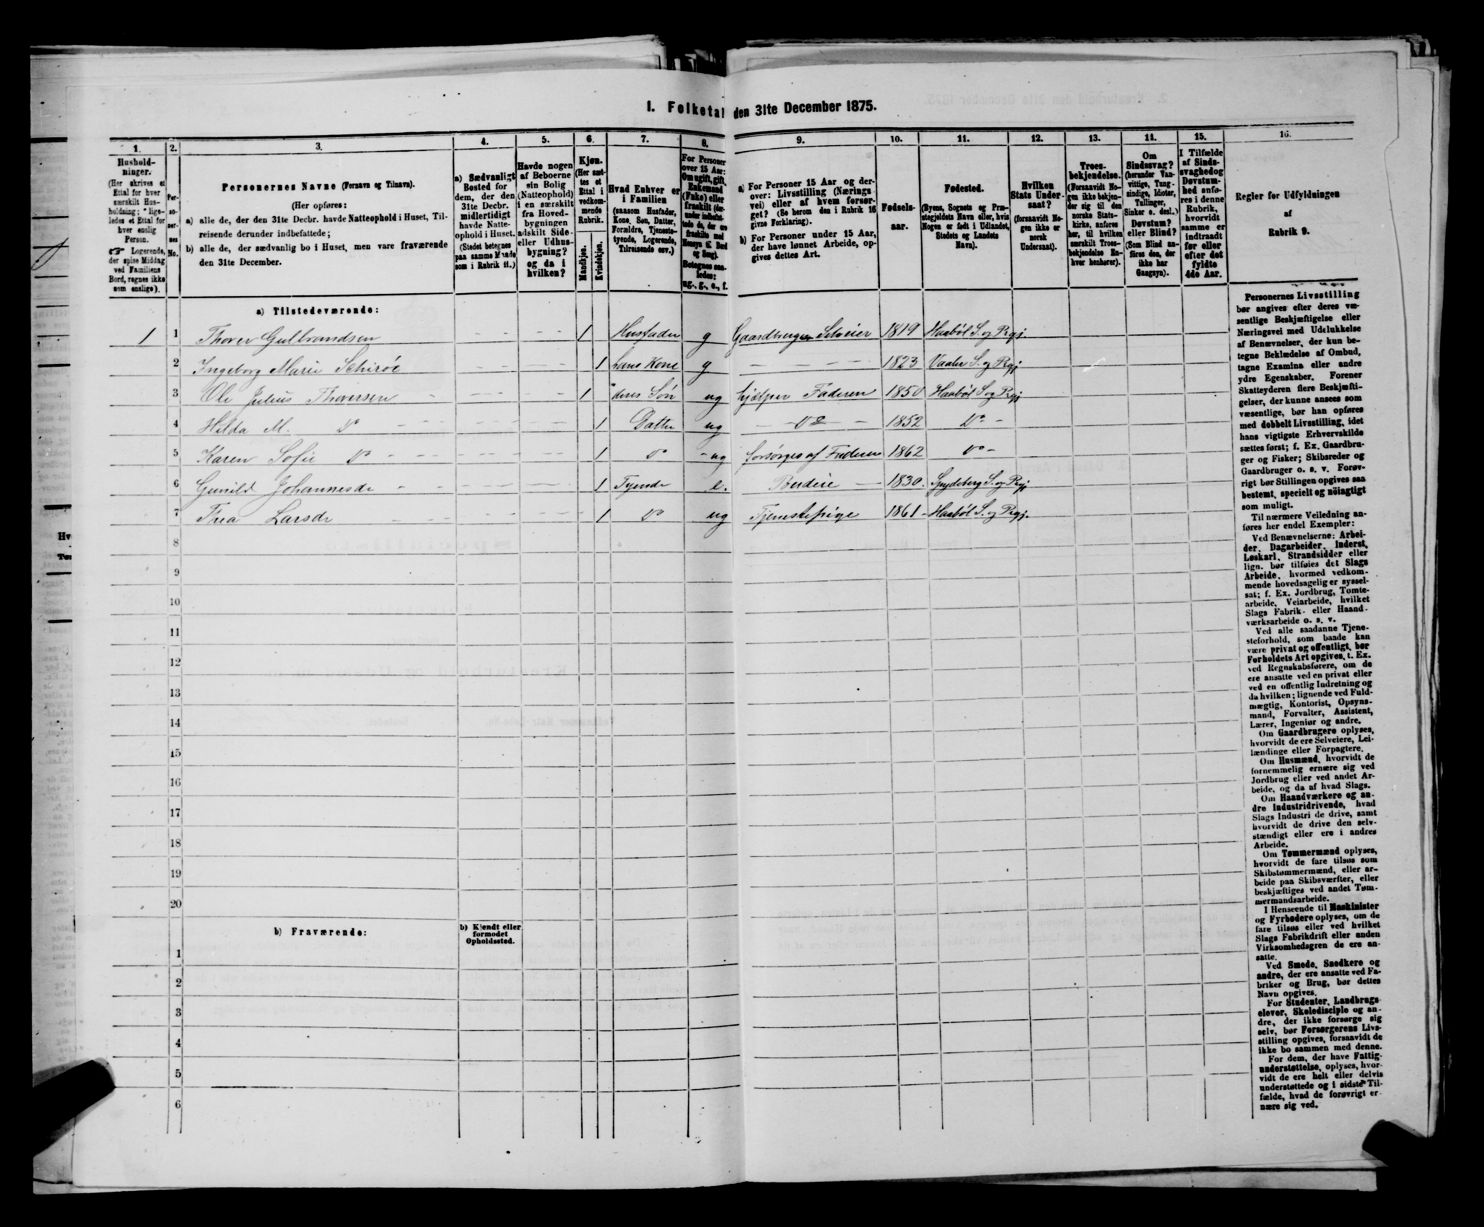 I. Folketal den 31te December 1875.
1. 2. 3. 4. 5. 6. 7. 8. 9. 10. 11. 12. 13. 14. 15. 16.
Hushold-
ninger.
(Her skrives et
Ettal for hver
særskilt Hus-
holdning; "lige-
ledes et Ettal for
hver enslig
Person.
☞ Logerende,
der spise Middag
ved Familiens
Bord, regnes ikke
som enslige).
Per-
so-
ner-
nes
No.
Personernes Navne (Fornavn og Tilnavn).
(Her opføres:
a) alle de, der den 31te Decbr. havde Natteophold i Huset, Til-
reisende derunder indbefattede;
b) alle de, der sædvanlig bo i Huset, men vare fraværende
den 31te December.
a) Sædvanligt
Bosted for
dem, der den
31te Decbr.
midlertidigt
havde Natte-
ophold i Huset.
(Stedet betegnes
paa samme Maade
som i Rubrik 11.)
Havde nogen
af Beboerne
sin Bolig
(Natteophold)
i en særskilt
fra Hoved-
bygningen
adskilt Side-
eller Udhus-
bygning?
og da i
hvilken?
Kjøn.
(Her sæt-
tes et
Ettal i
vedkom-
mende
Rubrik.
Mandkjøn.
Kvindekjøn.
Hvad Enhver er
i Familien
(saasom Husfader,
Kone, Søn, Datter,
Forældre, Tjeneste-
tyende, Logerende,
Tilreisende osv.)
For Personer
over 15 Aar:
Om ugift, gift,
Enkemand
(Enke) eller
fraskilt
Betegnes saa-
ledes:
ug., g., e., f.
a) For Personer 15 Aar og der-
over: Livsstilling (Nærings-
vei) eller af hvem forsør-
get? (Se herom den i Rubrik 16
givne Forklaring).
b) For Personer under 15 Aar,
der have lønnet Arbeide, op-
gives dettes Art.
Fødsels-
aar.
Fødested.
(Byens, Sognets og Præ-
stegjeldets Navn eller, hvis
Nogen er født i Udlandet,
Stedets og Landets
Navn).
Hvilken
Stats Under-
saat?
(forsaavidt No-
gen ikke er
norsk
Undersaat).
Troes-
bekjendelse.
(Forsaavidt No-
gen ikke bekjen-
der sig til den
norske Stats-
kirke, anføres
her, til hvilken
særskilt Troes-
bekjendelse En-
hver henhører).
Om
Sindssvag?
(herunder Van-
vittige, Tung-
sindige, Idioter,
Tullinger,
Sinker o. desl.)
Døvstum?
eller Blind?
(Som Blind an-
føres den, der
ikke har
Gangsyn).
I Tilfælde
af Sinds-
svaghed og
Døvstum-
hed anfø-
res i denne
Rubrik,
hvorvidt
samme er
indtraadt
før eller
efter det
fyldte
4de Aar.
Regler for Udfyldningen
af
Rubrik 9.
a) Tilstedeværende:
1 1 Thorer Gulbrandsen 1 Husfader g Gaardbruger Selveier 1819 Haabøl S. og Pgj.
2 Ingeborg Marie 1 hans Kone g 1823 Vaaler S. og Pgj
3 Ole Julius Thoresen 1 deres Søn ug hjælper Faderen 1850 Haabøl S. og Pgj
4 Hilda M. Do 1 Datter ug Do 1852 Do
5 Karen Sofie Do 1 Do ug forsørges af Faderen 1862 Do
6 Gunild Johannesdr 1 Tyende e. Budeie 1830 Spydeberg S. og Pgj
7 Larsdr 1 Do ug Tjenestepige 1861 Haabøl S. og Pgj.
8
9
10
11
12
13
14
15
16
17
18
19
20
b) Fraværende:
b) Kjendt eller
formodet
Opholdssted.
1
2
3
4
5
6
Personernes Livsstilling
bør angives efter deres væ-
sentlige Beskjæftigelse eller
Næringsvei med Udelukkelse
af Benævnelser, der kun be-
tegne Beklædelse af Ombud,
tagne Examina eller andre
ydre Egenskaber. Forener
Skatteyderen flere Beskjæfti-
gelser, der kunne ansees som
væsentlige, bør han opføres
med dobbelt Livsstilling, idet
hans vigtigste Erhvervskilde
sættes først; f. Ex. Gaardbru-
ger og Fisker; Skibsreder og
Gaardbruger o. s. v. Forøv-
rigt bør Stillingen opgives saa
bestemt, specielt og nøiagtigt
som muligt.
Til nærmere Veiledning an-
føres her endel Exempler:
Ved Benævnelserne: Arbei-
der, Dagarbeider, Inderst,
Løskarl, Strandsidder eller
lign. bør tilføies det Slags
Arbeide, hvormed vedkom-
mende hovedsagelig er syssel-
sat; f. Ex. Jordbrug, Tomte-
arbeide, Veiarbeide, hvilket
Slags Fabrik- eller Haand-
værksarbeide o. s. v.
Ved alle saadanne Tjene-
steforhold, som baade kan
være privat og offentligt, bør
Forholdets Art opgives, t. Ex.
ved Regnskabsførere, om de
ere ansatte ved en privat eller
ved en offentlig Indretning og
da hvilken; lignende ved Fuld-
mægtig, Kontorist, Opsyns-
mand, Forvalter, Assistent,
Lærer, Ingeniør og andre.
Om Gaardbrugere oplyses,
hvorvidt de ere Selveiere, Lei-
lændinge eller Forpagtere.
Om Husmænd, hvorvidt de
fornemmelig ernære sig ved
Jordbrug eller ved andet Ar-
beide, og da af hvad Slags.
Om Haandværkere og an-
dre Industridrivende, hvad
Slags Industri de drive, samt
hvorvidt de drive den selv-
stændigt eller ere i andres
Arbeide.
Om Tømmermænd oplyses,
hvorvidt de fare tilsøs som
Skibstømmermænd, eller ar-
beide paa Skibsværfter, eller
beskjæftiges ved andet Tøm-
mermandsarbeide.
I Henseende til Maskinister
og Fyrbødere oplyses, om de
fare tilsøs eller ved hvilket
Slags Fabrikdrift eller anden
Virksomhedsgren de ere an-
satte.
Ved Smede, Snedkere og
andre, der ere ansatte ved Fa-
briker og Brug, bør dettes
Navn opgives.
For Studenter, Landbrugs-
elever, Skoledisciple og an-
dre, der ikke forsørge sig
selv, bør Forsørgerens Livs-
stilling opgives, forsaavidt de
ikke bo sammen med denne.
For dem, der have Fattig-
understøttelse, oplyses, hvor-
vidt de ere helt eller delvis
understøttede og i sidste Til-
fælde, hvad de forøvrigt er-
nære sig ved.